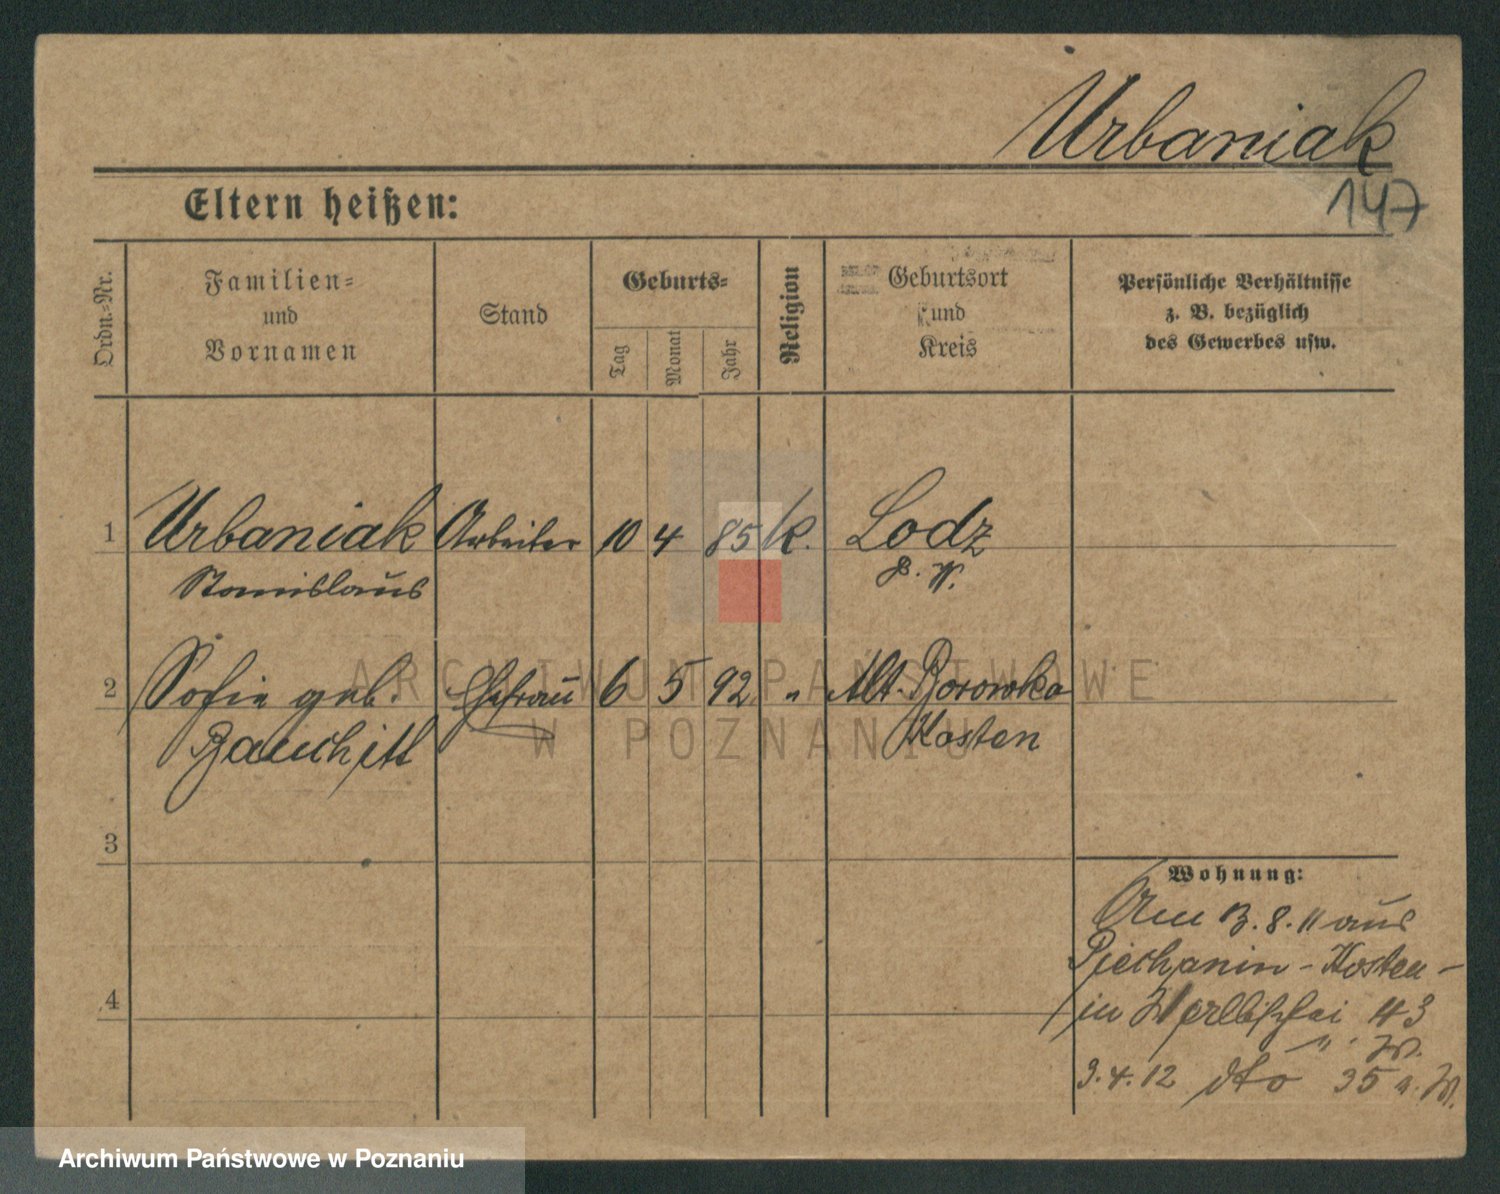 Urbaniak
147
Eltern heißen:
Ordn.-Nr.
Familien-
und
Vornamen
Stand
Geburts-
Tag
Monat
Jahr
Religion
Geburtsort
und
Kreis
Persönliche Verhältnisse
z. B. bezüglich
des Gewerbes usw.
1 Urbaniak Arbeiter 10 4 85 k. Lodz
Stanislaus
2 Sofie geb. Ehefrau 6 5 92 " Alt-Borowko
Kosten
3
Wohnung:
Am 13.8.11 aus
Piechanin - Kosten -
4
in 43
9.4.12 dto 35
ARCHIWUM PAŃSTWOWE
W POZNANIU
Archiwum Państwowe w Poznaniu